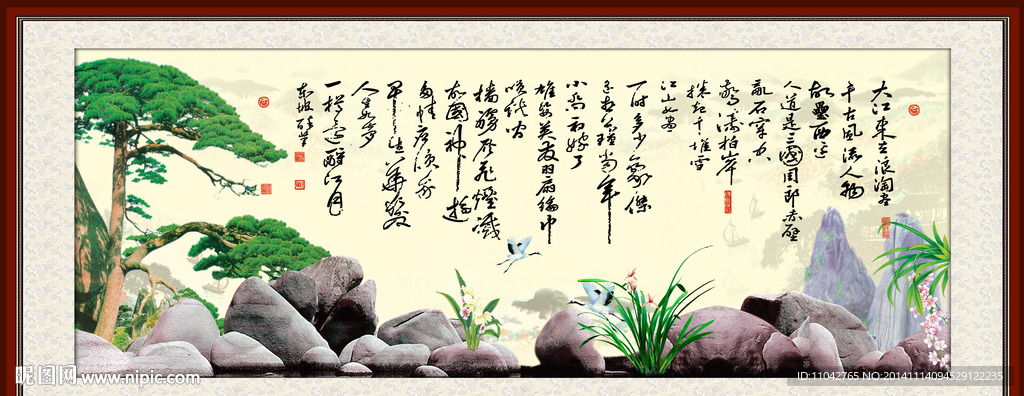 大江東去浪淘尽
千古風流人物
故壘西邊
人道是三國周郎赤壁
亂石穿空
驚濤拍岸
捲起千堆雪
江山如畫
一时多少豪傑
遥想公瑾當年
小喬初嫁了
雄姿英發羽扇綸巾
談笑间
檣艣灰飛煙滅
故國神遊
多情應笑我
早生華髮
人生如夢
一樽還酹江月
东坡醉笔
昵图网 www.nipic.com
ID:11042765 NO:20141114094529122235